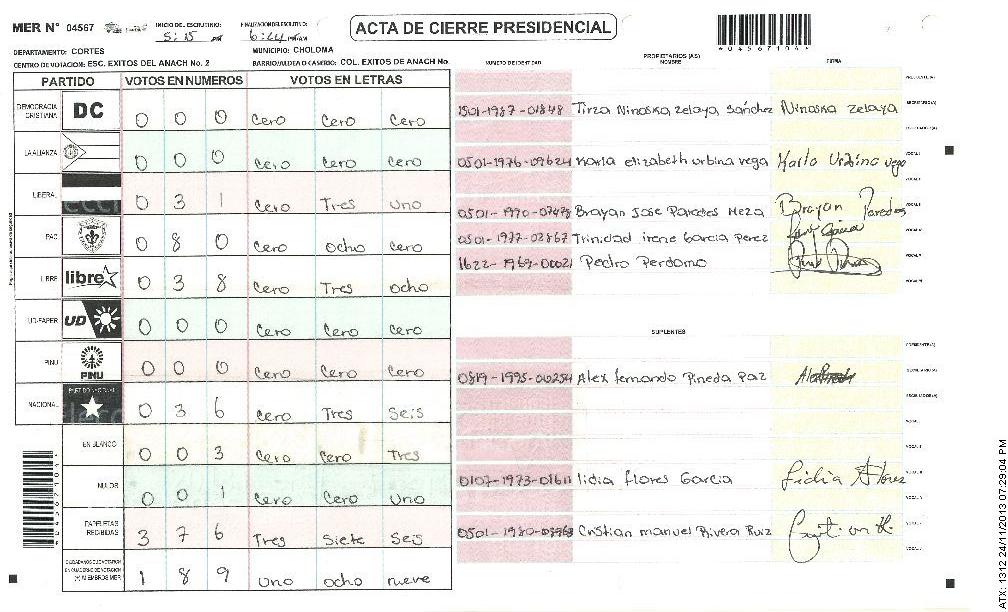 MER N° 04567
INICIO DEL ESCRUTINIO: 5:15 PM
FINALIZACION ESCRUTINIO:
ACTA DE CIERRE PRESIDENCIAL
*04567104*
DEPARTAMENTO: CORTES
MUNICIPIO: CHOLOMA
CENTRO DE VOTACION: ESC. EXITOS DEL ANACH No. 2
BARRIO/ALDEA O CASERIO: COL. EXITOS DE ANACH No.
PARTIDO VOTOS EN NUMEROS VOTOS EN LETRAS
DEMOCRACIA CRISTIANA DC 0 0 0 Cero Cero Cero
LA ALIANZA 0 0 0 Cero Cero Cero
LIBERAL 0 3 1 Cero Tres uno
PAC 0 8 0 Cero ocho cero
LIBRE libre 0 3 8 Cero Tres ocho
UD-FAPER UD 0 0 0 Cero Cero Cero
PINU PINU 0 0 0 Cero Cero Cero
NACIONAL PARTIDO NACIONAL 0 3 6 Cero Tres Seis
EN BLANCO 0 0 3 Cero Cero Tres
NULOS 0 0 1 Cero Cero uno
PAPELETAS RECIBIDAS 3 7 6 Tres Siete Seis
(+) MIEMBROS MER 1 8 9 uno ocho nueve
PROPIETARIOS (AS)
NUMERO DE IDENTIDAD NOMBRE FIRMA
PRESIDENTE (A)
1501-1987-01848 Tirza Ninoska Zelaya Sánchez Ninoska Zelaya SECRETARIO (A)
ESCRUTADOR (A)
0501-1976-09624 Karla elizabeth urbina vega Karla Urbina vega VOCAL I
VOCAL II
0501-1990-07478 Brayan Jose Paredes Meza Brayan Paredes VOCAL III
0501-1977-02867 Trinidad Irene Garcia Perez VOCAL IV
1622-1969-00021 Pedro Perdomo VOCAL V
VOCAL VI
SUPLENTES
PRESIDENTE (A)
Alex fernando Pineda Paz SECRETARIO (A)
ESCRUTADOR (A)
VOCAL I
0107-1973-01611 lidia flores Garcia Lidia Flores
Cristian manuel Rivera Ruiz
ATX: 1312 24/11/2013 07:29:04 PM